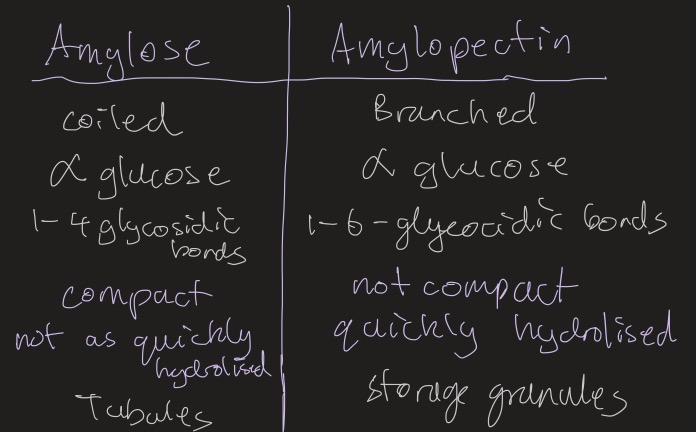 Amylose Amylopectin
coiled Branched
α glucose α glucose
1-4 glycosidic 1-6-glycocidic bonds
bonds
compact not compact
not as quickly quickly hydrolised
hydrolised
Tubules storage granules